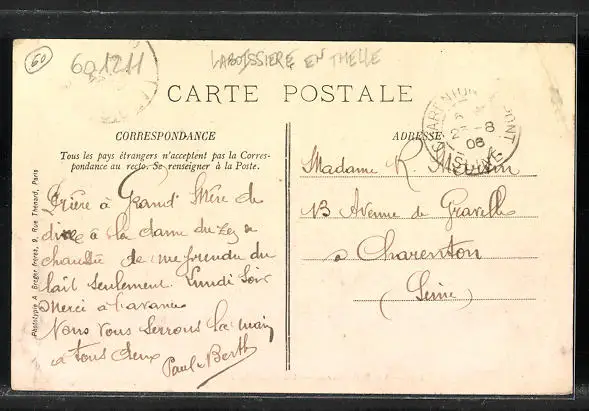 60
601211
LABOISSIERE EN THELLE
CARTE POSTALE
CORRESPONDANCE
Tous les pays étrangers n'acceptent pas la Corres-
pondance au recto. Se renseigner à la Poste.
ADRESSE
CHARENTON PONT
SEINE
25-8
08
Prière à Grand'Mère de
dire à la dame du rez de
chaussée de me prendre du
lait seulement Lundi soir
Merci à l'avance
Nous vous serrons la main
à tous deux
Paul Berth
Madame R.
13 Avenue de Gravelle
à Charenton
(Seine)
Phototypie A. Breger Frères, 9, Rue Thénard, Paris